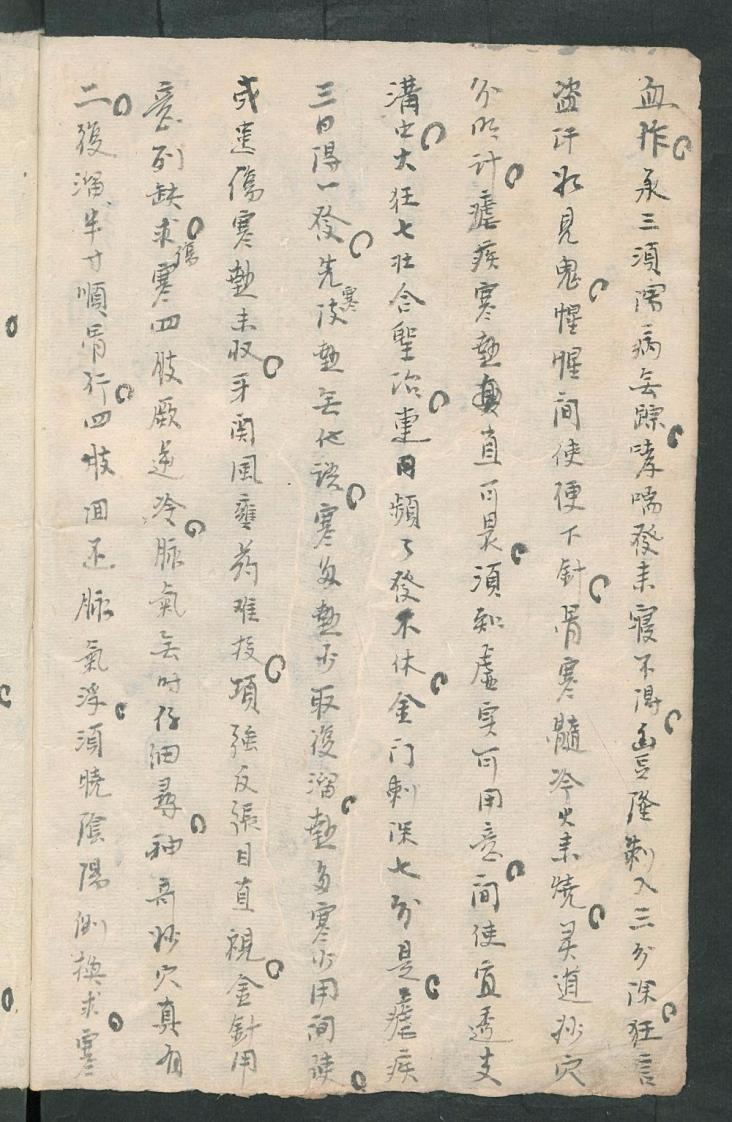 血作承三須濡病無踪哮喘發来寢不得豊隆刺入三分深狂言
盗汗如見鬼惺惺間使便下針骨寒髓冷火来燒灵道妙穴
分明計瘧疾寒熱真直可畏須知虚实可用意間使宜透支
溝中大狂七壮合聖治連日頻々發不休金门刺深七分是瘧疾
三日得一發先寒後熱無他語寒多熱少取復溜熱多寒少用間使
或患傷寒熱未收牙関風壅药难投項強反張目直視金針用
意列缺求傷寒四肢厥逆冷脉氣無时仔細尋神奇妙穴真有
二復溜半寸順骨行四肢回还脉氣浮須曉陰陽倒換求寒